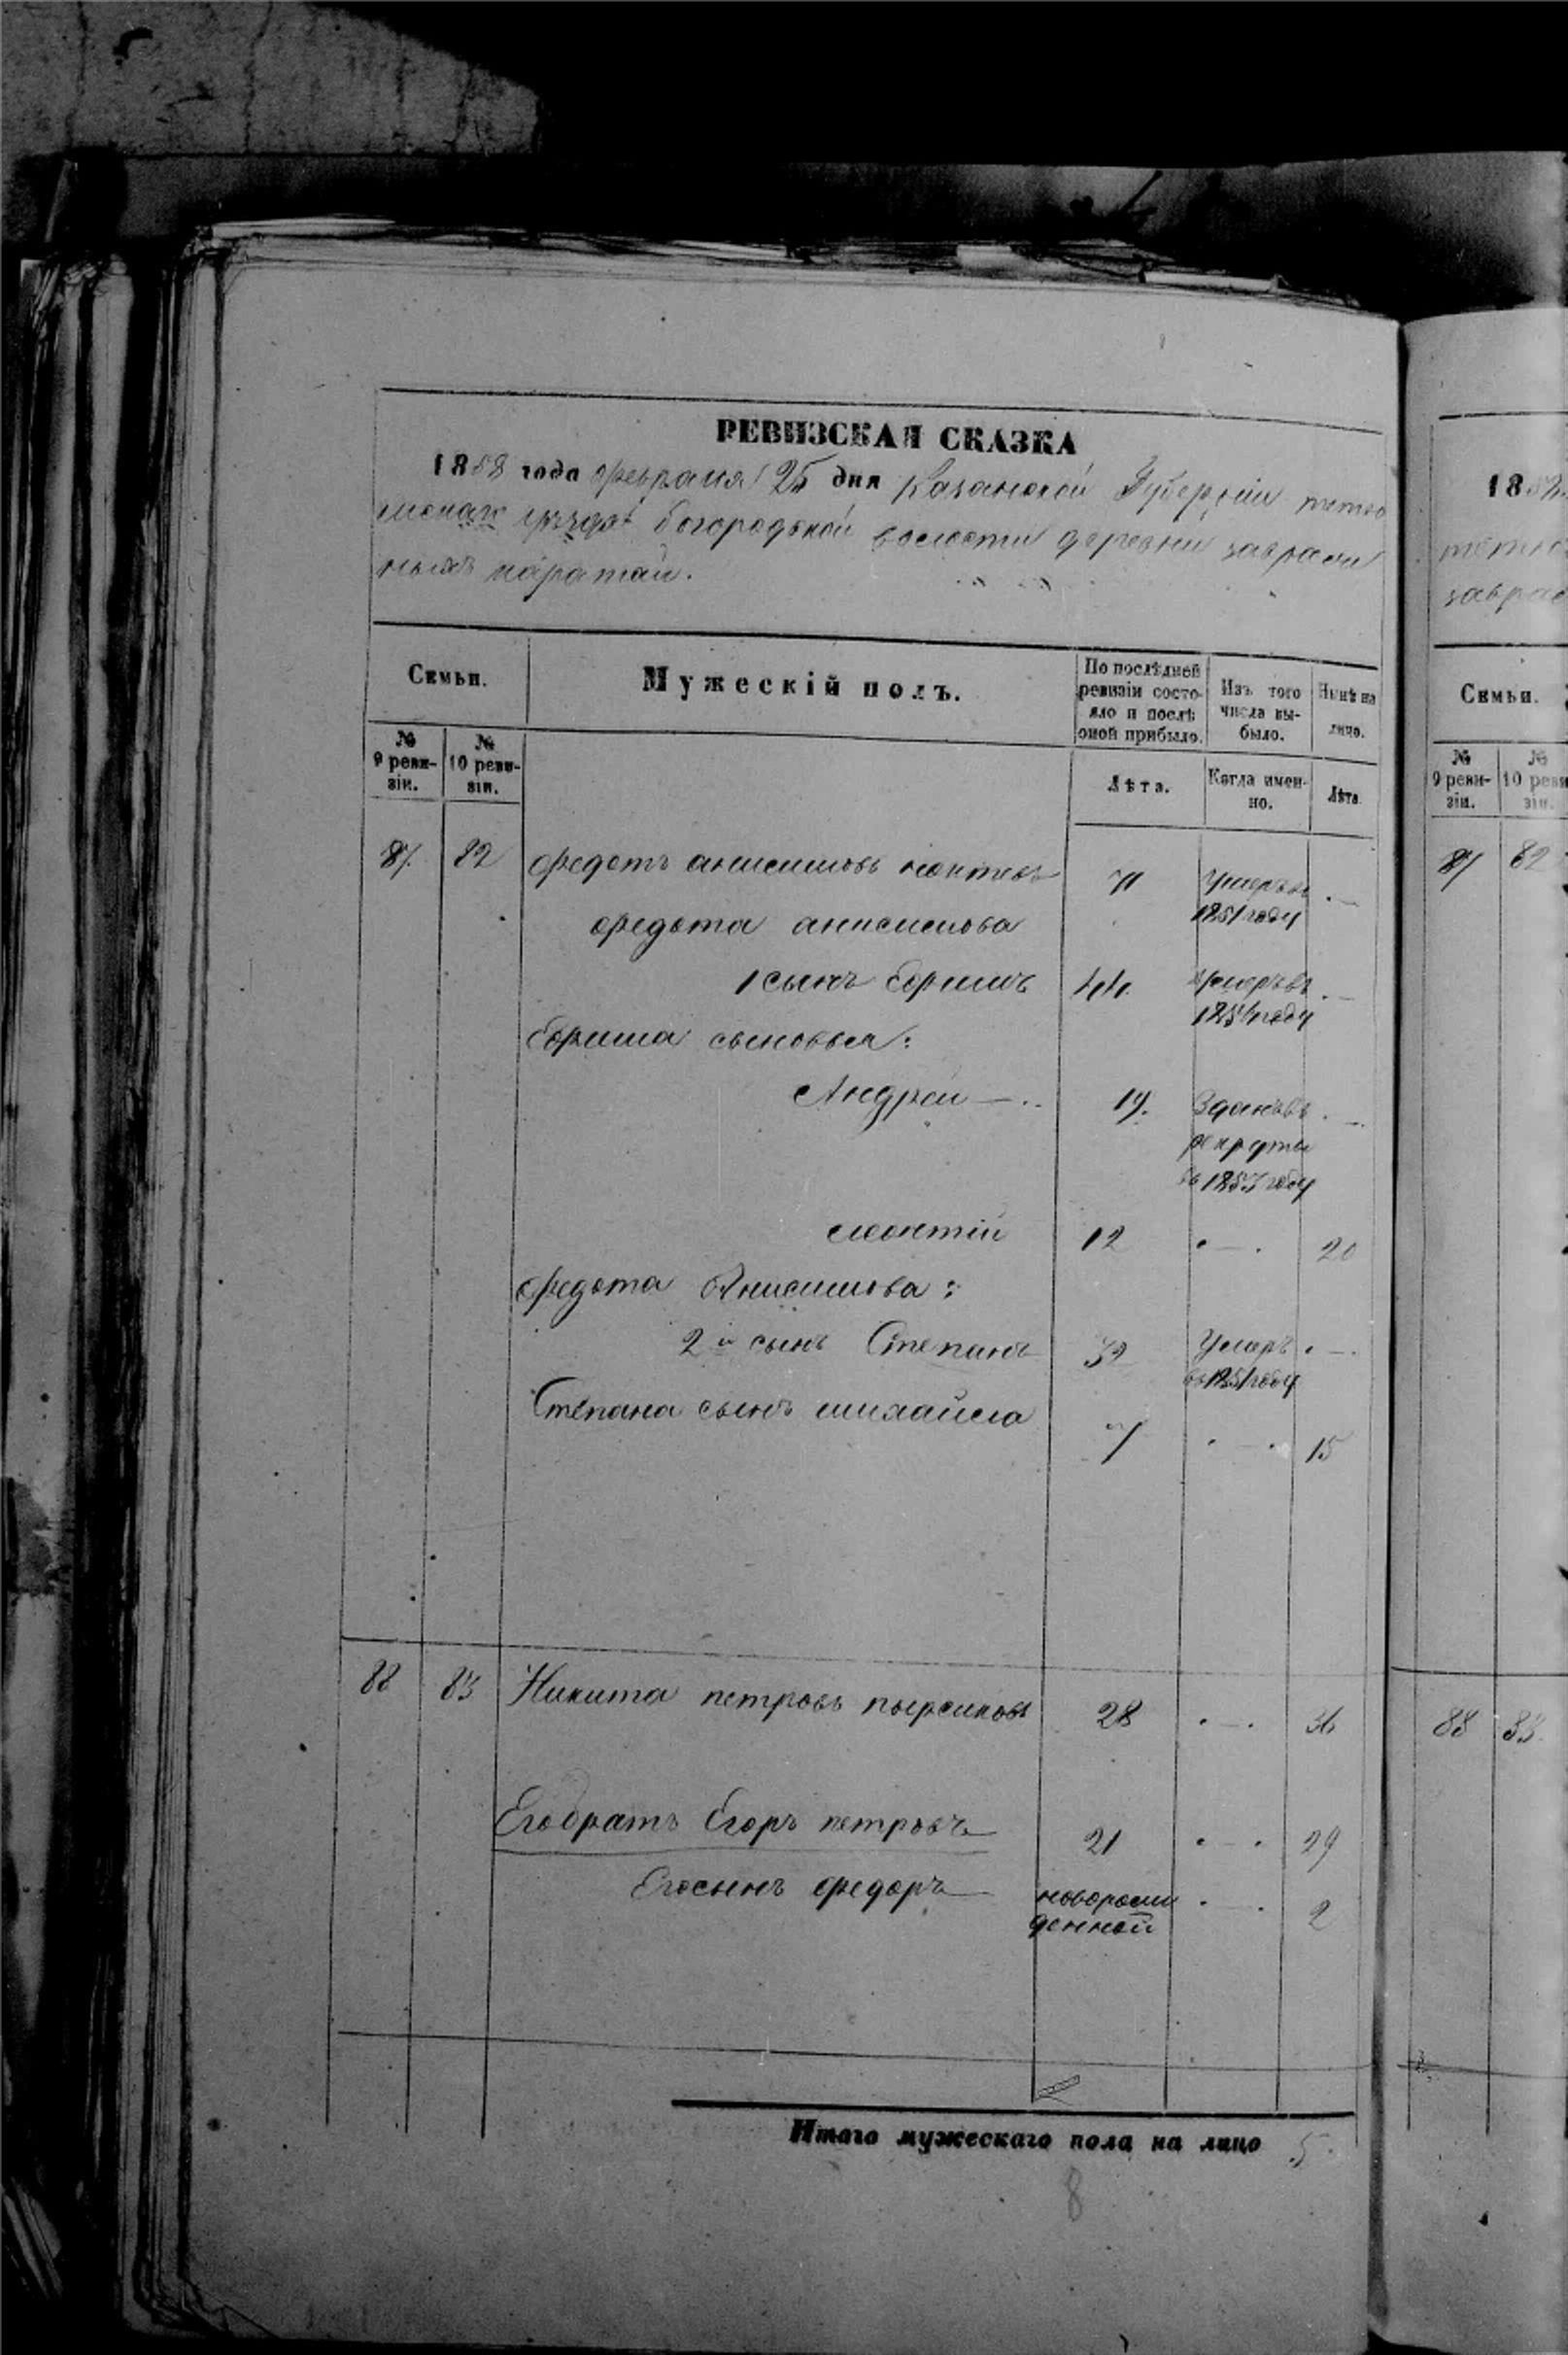 РЕВИЗСКАЯ СКАЗКА
1858 года февраля 25 дня Казанской Губерніи тетю
шскаго уѣзда Богородской волости деревни завраж
ныхъ каратай.
Семьи.
Мужескій полъ.
По послѣдней ревизіи состо-
яло и послѣ
оной прибыло.
Изъ того
числа вы-
было.
Нынѣ на
лицо.
№
9 реви-
зіи.
№
10 реви-
зіи.
Лѣта.
Когда имен-
но.
Лѣта
87 82 Федотъ анисимовъ 71 Умеръ въ
1851 году
Федота анисимова
1 сынъ Ефимъ 44. Умеръ въ
году
Ефима сыновья:
Андрей 19. Зданъ въ
рекруты
въ году
леонтій 12 20
Федота Анисимова:
2й сынъ Степанъ 32 Умеръ
въ 1851 году
Степана сынъ михайла 7 15
88 83 Никита петровъ пырсиковъ 28 36
Его братъ Егоръ петровъ 21 29
Его сынъ федоръ новорож
денной 2
Итого мужескаго пола на лицо 5.
8
18
Семьи.
№
9 реви-
зіи.
№
10 реви
зіи.
87 82
88 83.